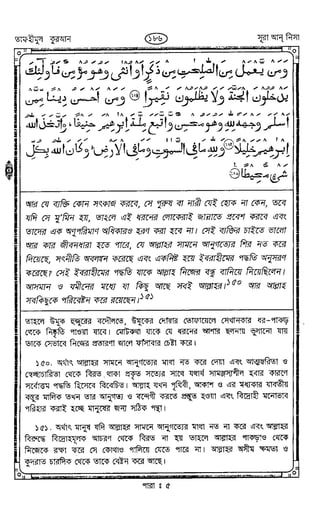 তাফহীমুল কুরআন ১৮৬ সূরা আন্ নিসা
وَمَنْ يَّعْمَلْ مِنَ الصّٰلِحٰتِ مِنْ ذَكَرٍ اَوْ اُنْثٰى وَهُوَ مُؤْمِنٌ فَاُولٰٓئِكَ
يَدْخُلُوْنَ الْجَنَّةَ وَلَا يُظْلَمُوْنَ نَقِيْرًا ﴿١٢٤﴾ وَمَنْ اَحْسَنُ دِيْنًا مِّمَّنْ
اَسْلَمَ وَجْهَهٗ لِلّٰهِ وَهُوَ مُحْسِنٌ وَّاتَّبَعَ مِلَّةَ اِبْرٰهِيْمَ حَنِيْفًا ۗ وَاتَّخَذَ اللّٰهُ
اِبْرٰهِيْمَ خَلِيْلًا ﴿١٢٥﴾ وَلِلّٰهِ مَا فِى السَّمٰوٰتِ وَمَا فِى الْاَرْضِ ۗ وَكَانَ اللّٰهُ بِكُلِّ
شَىْءٍ مُّحِيْطًا ﴿١٢٦﴾
আর যে ব্যক্তি কোন সৎকাজ করবে, সে পুরুষ বা নারী যেই হোক না কেন, তবে
যদি সে মু'মিন হয়, তাহলে এই ধরনের লোকেরাই জান্নাতে প্রবেশ করবে এবং
তাদের এক অণুপরিমাণ অধিকারও হরণ করা হবে না। সেই ব্যক্তির চাইতে ভালো
আর কার জীবনধারা হতে পারে, যে আল্লাহর সামনে আনুগত্যের শির নত করে
দিয়েছে, সৎনীতি অবলম্বন করেছে এবং একনিষ্ট হয়ে ইবরাহীমের পদ্ধতি অনুসরণ
করেছে? সেই ইবরাহীমের পদ্ধতি যাকে আল্লাহ নিজের বন্ধু বানিয়ে নিয়েছিলেন।
আসমান ও যমীনের মধ্যে যা কিছু আছে সবই আল্লাহর।১৫০ আর আল্লাহ
সবকিছুকে পরিবেষ্টন করে রয়েছেন।১৫১
তাহলে উমুক হুজুরের বদৌলতে, উমুকের দোয়ার তোফায়েলে সেখানকার ধর-পাকড়
থেকে নিষ্কৃতি পাওয়া যাবে। মোটকথা যাকে যে ধরনের আশার ছলনায় ভুলানো যায়
তাকে সেভাবে নিজের প্রতারণা জালে ফাঁসাবার চেষ্টা করে।
১৫০. অর্থাৎ আল্লাহর সামনে আনুগত্যের মাথা নত করে দেয়া এবং আত্মম্ভরিতা ও
স্বেচ্ছাচারিতা থেকে বিরত থাকা প্রকৃত সত্যের সাথে যথার্থ সামঞ্জস্যশীল হবার কারণে
সর্বোত্তম পদ্ধতি হিসেবে বিবেচিত। আল্লাহ যখন পৃথিবী, আকাশ ও এর মধ্যকার যাবতীয়
বস্তুর মালিক তখন তার আনুগত্য ও বন্দেগী করতে প্রস্তুত হওয়া এবং বিদ্রোহী মনোভাব
পরিহার করাই হচ্ছে মানুষের জন্য সঠিক পন্থা।
১৫১. অর্থাৎ মানুষ যদি আল্লাহর সামনে আনুগত্যের মাথা নত না করে এবং আল্লাহর
বিরুদ্ধে বিদ্রোহমূলক আচরণ থেকে বিরত না হয় তাহলে আল্লাহর পাকড়াও থেকে
নিজেকে রক্ষা করে সে কোথাও পালিয়ে যেতে পারে না। আল্লাহর অসীম ক্ষমতা ও
কুদরাত চারদিক থেকে তাকে বেষ্টন করে আছে।
পারা : ৫